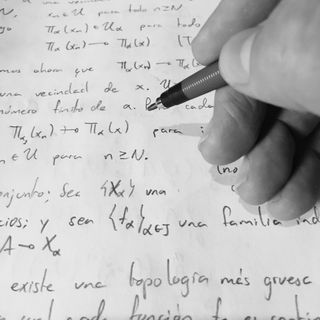 una vecindad
x_n ∈ U para todo n ≥ N.
π_α(x_n) ∈ U_α para todo
π_α(x_n) → π_α(x)
mos ahora que π_α(x_n) →
una vecindad de x. U
número finito de α. Para cada
π_j(x_n) → π_α(x) para i
n ∈ U para n ≥ N.
onjunto; Sea {X_α} una
cios; y sea {f_α}_{α∈J} una familia ind
A → X_α
existe una topología más gruesa
cual cada función f_α es contin